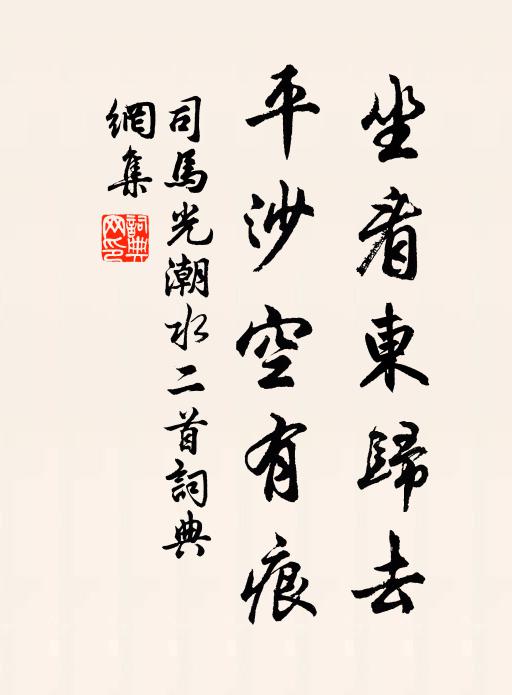 坐看東歸去
平沙空有痕
司馬光潮水二首詞典
網集
詞典網印